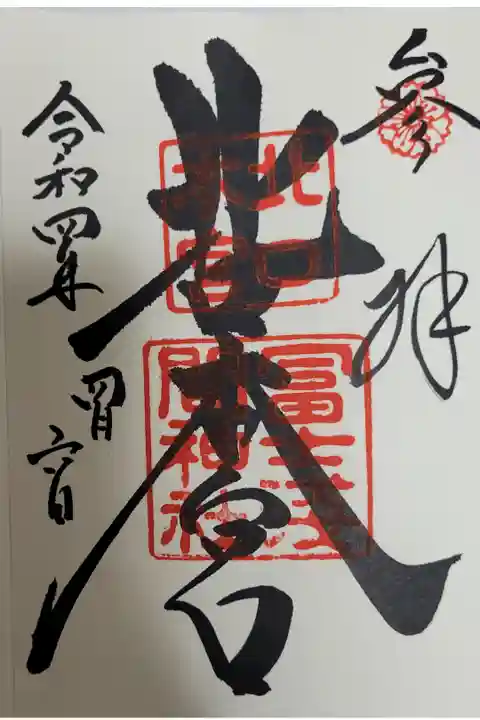 参拝
北口本宮
北口
本宮
冨士浅
間神社
令和四年四月六日